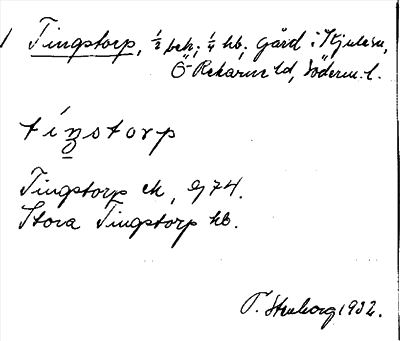 1 Tingstorp, ½ beh; ¼ hb; gård i Kjulasn,
Ö Rekarne hd, Söderm. l.
tíŋstorp
Tingstorp ek, G 74.
Stora Tingstorp hb.
T. Stenborg 1932.